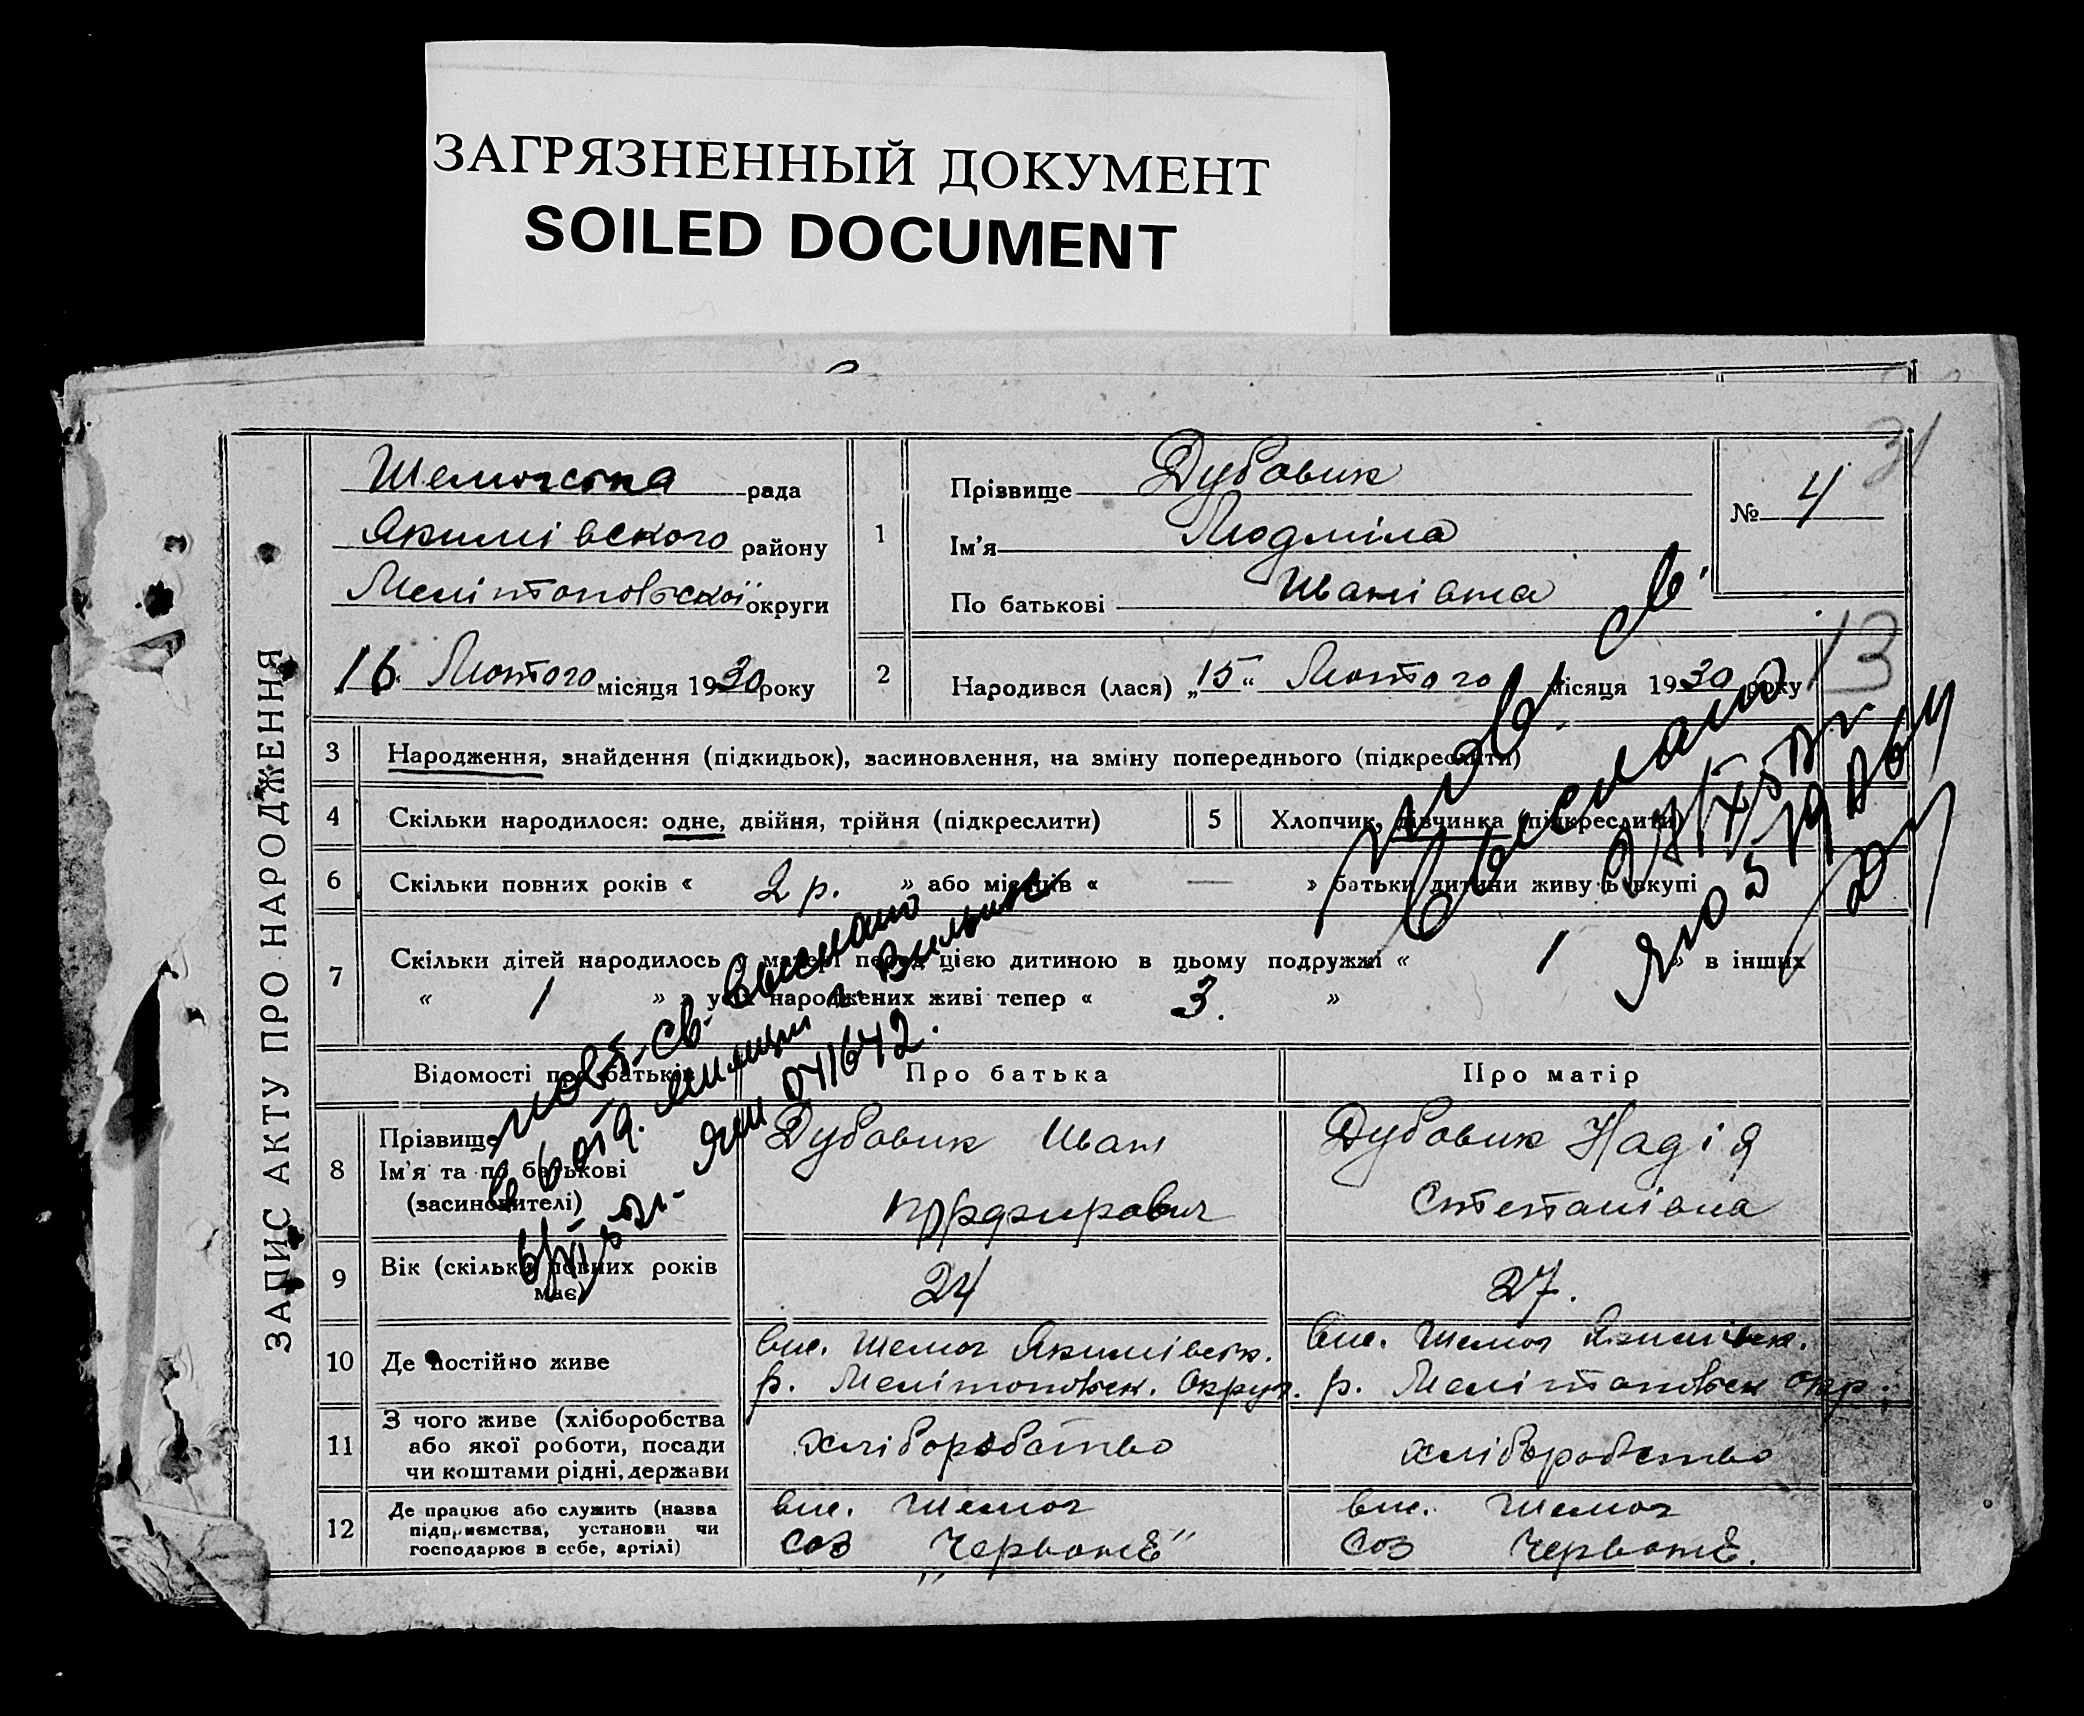 ЗАГРЯЗНЕННЫЙ ДОКУМЕНТ
SOILED DOCUMENT
ЗАПИС АКТУ ПРО НАРОДЖЕННЯ
рада
Якимівского району
Мелітоповської округи
16 Лютого місяця 1930 року
1
Прізвище Дубовик
Ім'я Людміла
По батькові Иванівна
№ 4
31
13
2
Народився (лася) „15“ Лютого місяця 1930 року
3 Народження, знайдення (підкидьок), засиновлення, на зміну попереднього (підкреслити)
4 Скільки народилося: одне, двійня, трійня (підкреслити)
5 Хлопчик, дівчинка (підкреслити)
6 Скільки повних років « 2 р. » або місяців « — » батьки дитини живуть вкупі
7 Скільки дітей народилось у матері перед цією дитиною в цьому подружжі « 1 » в інших
« 1 » з усіх народжених живі тепер « 3. »
Відомості про батьків
Про батька
Про матір
8
Прізвище
Ім'я та по батькові
(засиновителі)
Дубовик Иван
Дубовик Надія
Степанівна
9 Вік (скільки повних років має)
24
27.
10 Де постійно живе
р. Мелітоповськ. Округ.
р. Мелітоповськ окр.
11
З чого живе (хліборобства
або якої роботи, посади
чи коштами рідні, держави
хліборобство
хліборобство
12
Де працює або служить (назва
підприємства, установи чи
господарює в себе, артілі)
Соз „Червоне“
Соз Червоне.
повт. св. выслано
в 6 отд. милиции г. Вильнюс
ЯШ 041642.
повт. св.
выслано